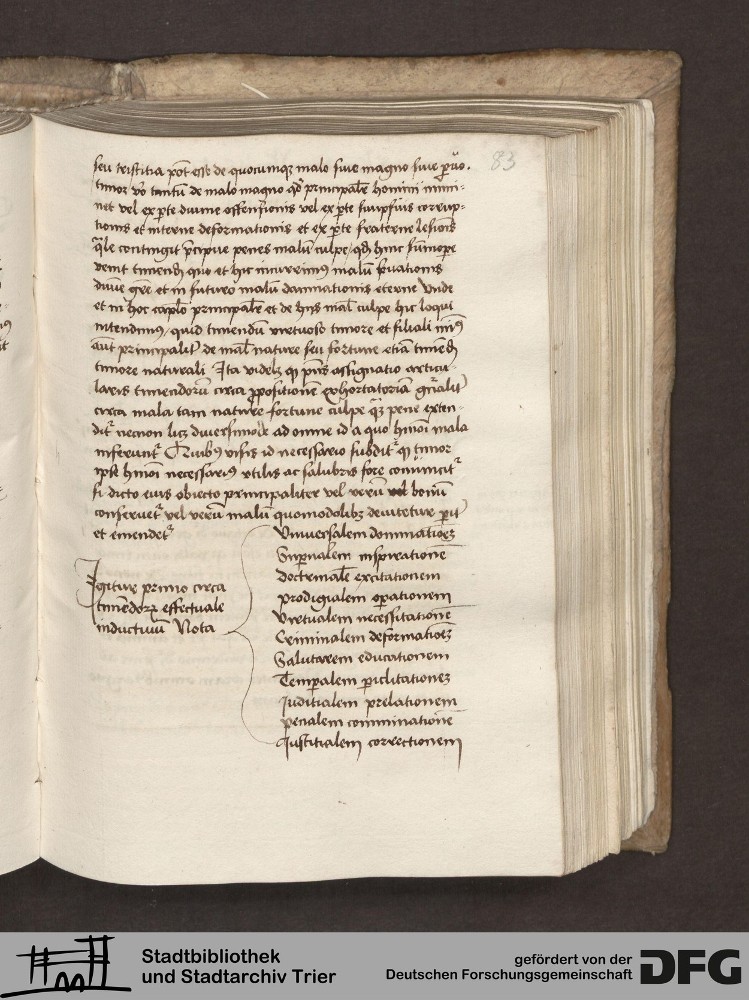 83
seu tristitia pōt esse de quocumqꝫ malo siue magno siue paruo.
timor vō tantū de malo magno qđ principale homini immi-
net vel ex pte diuine offensionis vel ex pte suiipsius corrup-
tionis et interne deformationis et ex pte fraterne lesionis
q̄le contingit p̄cipue penes malū culpe qđ hinc sūmope
venit timendū quo et hic incurrimꝰ malū puationis
diuīe grē et in futuro malū damnationis eterne Vnde
et in hoc caplō principale et de hijs mal culpe hic loqui
intendimꝰ, quid timendū virtuoso timore et filiali
aut principalit de mal nature seu fortune etiā timend
timore naturali Ita videlꝫ qꝫ pñs assignatio articu-
laris timendorū circa ppositionē exhortatoriā gñalit
circa mala tam nature fortune culpe qꝫ pene exten-
dit necnon licꝫ diuersimode ad omne id a quo hmōi mala
inferunt Quibꝰ visis id necessario subdit qꝫ timor
ipse hmōi necessariꝰ vtilis ac salubris fore conuincit
si dicto eius obiecto principaliter vel verū vel bonū
conseruet vel verū malū quomodolibꝫ deuitetur
et emendet
Igitur primo circa
timendorꝝ effectuale
inductiuū Nota
Vniuersalem dominatiōeꝫ
Supnalem inspirationē
Doctrinalē excitationem
prodigialem opationem
Virtualem necessitationē
Criminalem deformatiōeꝫ
Salutarem educationem
Tempalem piclitationeꝫ
Iuditialem prelationem
penalem comminationē
Iustitialem correctionem
Stadtbibliothek
und Stadtarchiv Trier
gefördert von der
Deutschen Forschungsgemeinschaft
DFG